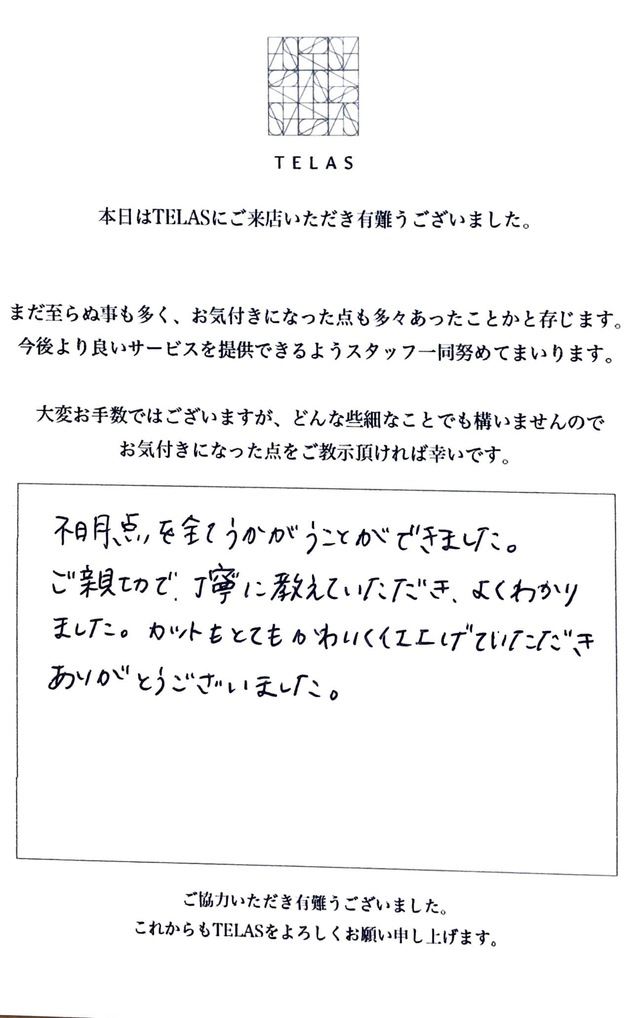 TELAS
本日はTELASにご来店いただき有難うございました。
まだ至らぬ事も多く、お気付きになった点も多々あったことかと存じます。
今後より良いサービスを提供できるようスタッフ一同努めてまいります。
大変お手数ではございますが、どんな些細なことでも構いませんので
お気付きになった点をご教示頂ければ幸いです。
不明点を全てうかがうことができました。
ご親切で、丁寧に教えていただき、よくわかり
ました。カットもとてもかわいく仕上げていただき
ありがとうございました。
ご協力いただき有難うございました。
これからもTELASをよろしくお願い申し上げます。